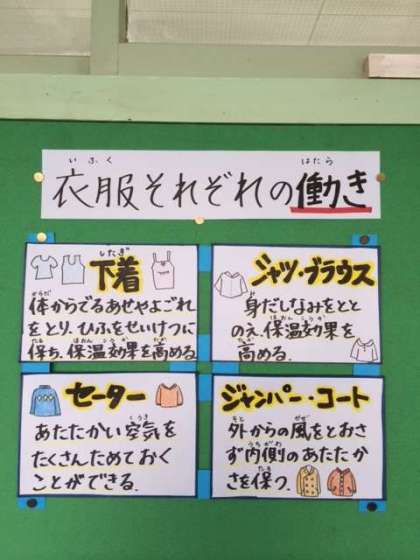 いふく はたら
衣服それぞれの働き
したぎ
下着
からだ
体からでるあせやよごれ
をとり、ひふをせいけつに
たも ほおん こうか たか
保ち、保温効果を高める。
シャツ・ブラウス
み
身だしなみをとと
ほおん こうか
のえ、保温効果を
たか
高める。
セーター
くうき
あたたかい空気を
たくさんためておく
ことができる。
ジャンパー・コート
そと かぜ
外からの風をとおさ
うちがわ
ず内側のあたたか
たも
さを保つ。